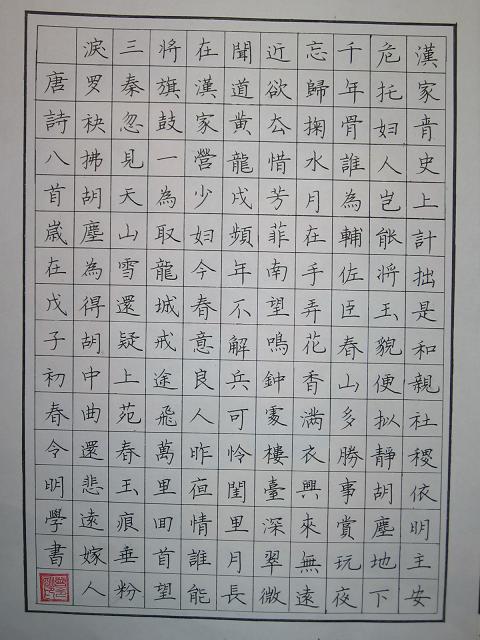 漢家青史上計拙是和親社稷依明主安
危托婦人豈能將玉貌便拟靜胡塵地下
千年骨誰為輔佐臣春山多勝事賞玩夜
忘歸掬水月在手弄花香滿衣興來無遠
近欲去惜芳菲南望鳴鐘處樓臺深翠微
聞道黃龍戍頻年不解兵可怜閨里月長
在漢家營少婦今春意良人昨夜情誰能
將旗鼓一為取龍城戒途飛萬里回首望
三秦忽見天山雪還疑上苑春玉痕垂粉
淚羅袂拂胡塵為得胡中曲還悲遠嫁人
唐詩八首歲在戊子初春令明學書